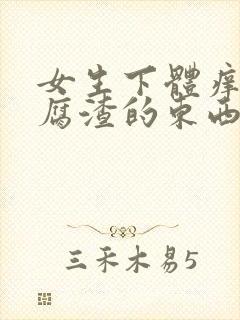 女生下體癢
腐渣的東西
三禾木易5